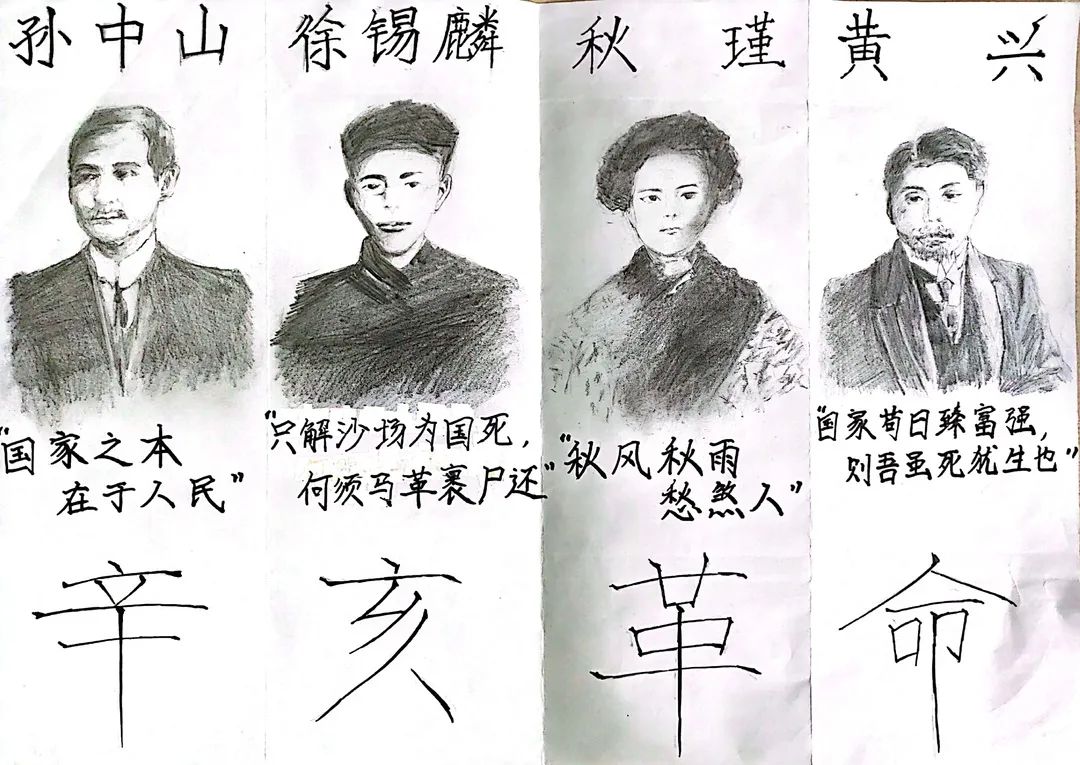 孙中山
"国家之本
在于人民"
辛
徐锡麟
"只解沙场为国死，
何须马革裹尸还"
亥
秋瑾
"秋风秋雨
愁煞人"
革
黄兴
"国家苟日臻富强，
则吾虽死犹生也"
命